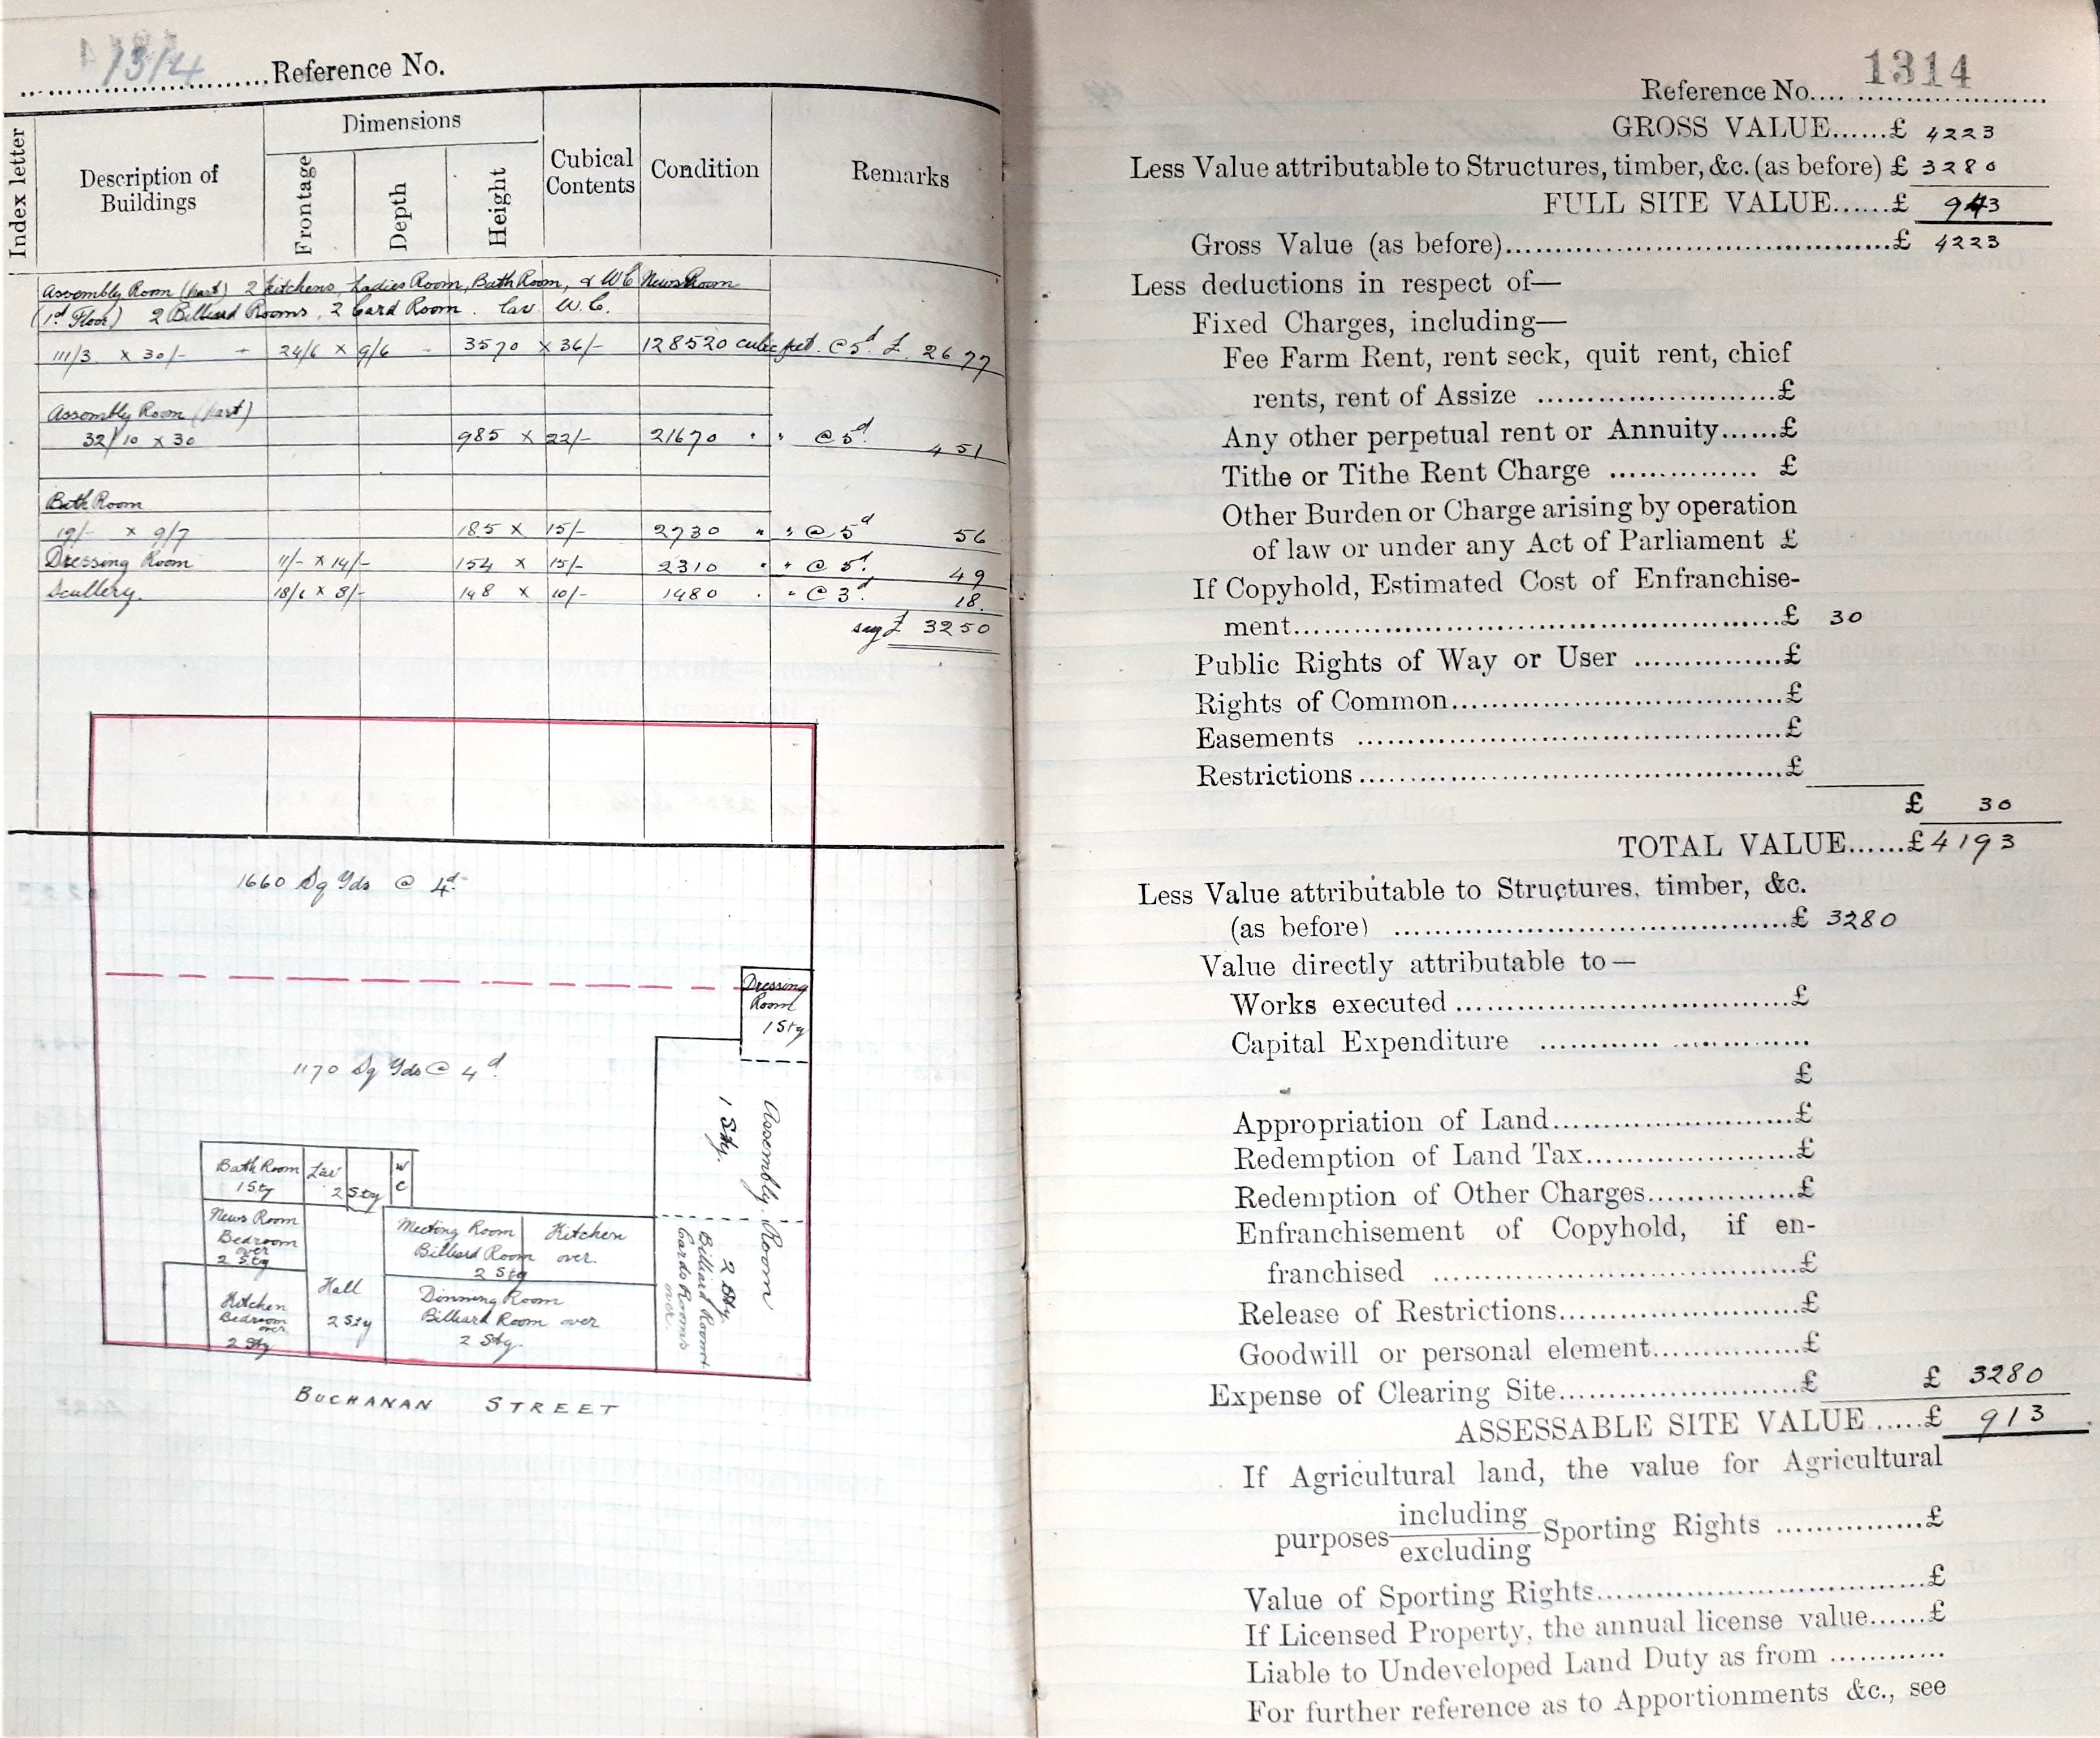 1314 Reference No.
Index letter
Description of Buildings
Dimensions
Frontage
Depth
Height
Cubical Contents
Condition
Remarks
Assembly Room (part) 2 Kitchens, Ladies Room, Bath Room, & W C News Room
(1st Floor) 2 Billiard Rooms, 2 Card Room. Lav W. C.
111/3. x 30/- + 24/6 x 9/6 - 3570 x 36/- 128520 cubic feet. @ 5d £ 2677
Assembly Room (part)
32/10 x 30 985 x 22/- 21670 " " @ 5d. 451
Bath Room
19/- x 9/7 185 x 15/- 2730 " " @ 5d 56
Dressing Room 11/- x 14/- 154 x 15/- 2310 " " @ 5d. 49
Scullery. 18/6 x 8/- 148 x 10/- 1480 " " @ 3d. 18.
say £ 3250
1660 Sq Yds @ 4d.
Dressing
Room
1 Sty
1170 Sq Yds @ 4d
Assembly Room
1 Sty.
Bath Room
1 Sty
Lav
2 Sty
W
C
News Room
Bedroom
over
2 Sty
Meeting Room
Billiard Room
2 Sty
Kitchen
over.
2 Sty.
Billiard Room
Cards Rooms
over.
Kitchen
Bedroom
over
2 Sty
Hall
2 Sty
Dinning Room
Billiard Room over
2 Sty.
BUCHANAN STREET
1314
Reference No....
GROSS VALUE......£ 4223
Less Value attributable to Structures, timber, &c. (as before) £ 3280
FULL SITE VALUE......£ 943
Gross Value (as before)......£ 4223
Less deductions in respect of—
Fixed Charges, including—
Fee Farm Rent, rent seck, quit rent, chief
rents, rent of Assize ......£
Any other perpetual rent or Annuity......£
Tithe or Tithe Rent Charge ...... £
Other Burden or Charge arising by operation
of law or under any Act of Parliament £
If Copyhold, Estimated Cost of Enfranchise-
ment......£ 30
Public Rights of Way or User ......£
Rights of Common......£
Easements ......£
Restrictions......£
£ 30
TOTAL VALUE......£ 4193
Less Value attributable to Structures, timber, &c.
(as before) ......£ 3280
Value directly attributable to—
Works executed ......£
Capital Expenditure ......
£
Appropriation of Land......£
Redemption of Land Tax......£
Redemption of Other Charges......£
Enfranchisement of Copyhold, if en-
franchised ......£
Release of Restrictions......£
Goodwill or personal element......£
Expense of Clearing Site......£ £ 3280
ASSESSABLE SITE VALUE......£ 913
If Agricultural land, the value for Agricultural
purposes including excluding Sporting Rights ......£
Value of Sporting Rights......£
If Licensed Property, the annual license value......£
Liable to Undeveloped Land Duty as from ......
For further reference as to Apportionments &c., see